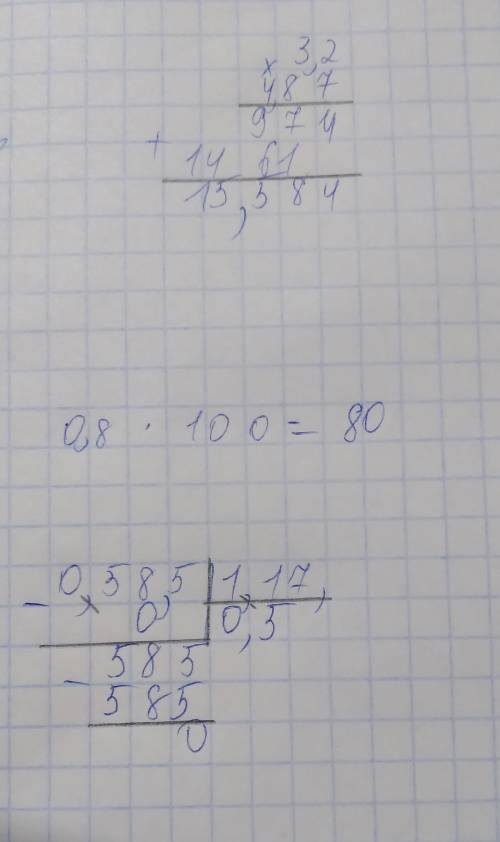 3,2
× 4,87
974
+ 14 61
15,584
0,8 · 100 = 80
0,58,5 | 1,17,
- 0, | 0,5
585
- 585
0